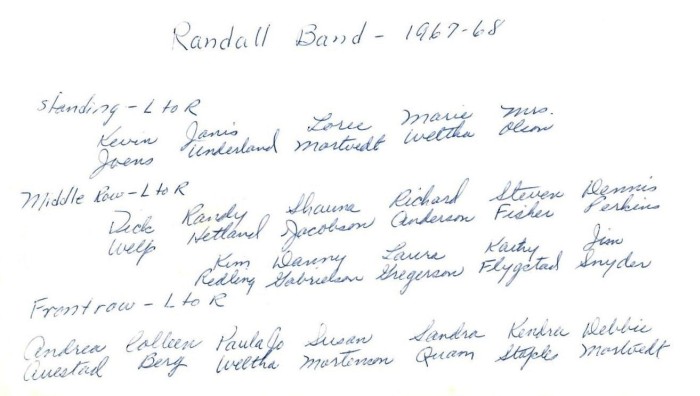 Randall Band - 1967-68
Standing - L to R
Kevin Janis Loree Marie Mrs.
Joens Underland Mortvedt Weltha Olson
Middle Row - L to R
Dick Randy Shauna Richard Steven Dennis
Welp Hetland Jacobson Anderson Fisher Perkins
Kim Danny Laura Kathy Jim
Redling Gabrielson Gregerson Flygstad Snyder
Front row - L to R
Andrea Colleen Paula Jo Susan Sandra Kendra Debbie
Auestad Berg Weltha Mortenson Quam Staples Mortvedt